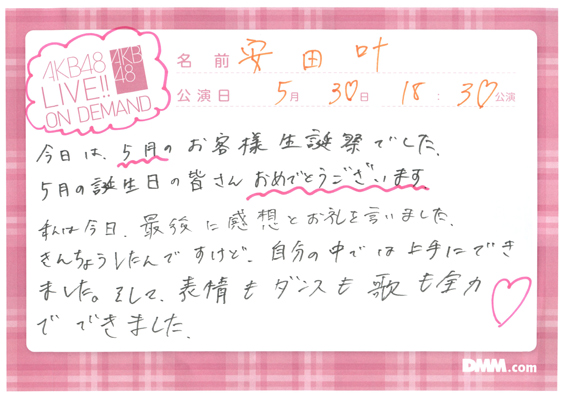 AKB48
LIVE!!
ON DEMAND
AKB
48
名前 安田叶
公演日 5月 30日 18:30公演
今日は、5月のお客様生誕祭でした。
5月の誕生日の皆さんおめでとうございます。
私は今日、最後に感想とお礼を言いました。
きんちょうしたんですけど、自分の中では上手にでき
ました。そして、表情もダンスも歌も全力
でできました。
DMM.com